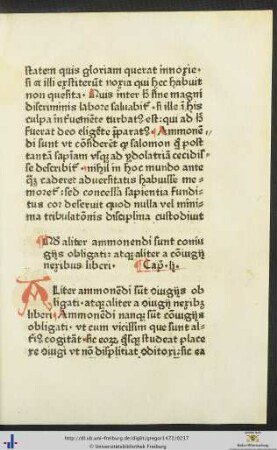 statem quis gloriam querat innoxie·
si & illi extiterūt noxia qui hec habuit
non quesita· Quis inter b̄ sine magni
discriminis labore saluabit̄· si ille ī his
culpa īnueniēre turbat᷒ est: qui ad b̄
fuerat deo eligēte p̄parat᷒? Ammonē
di sunt vt cōsiderēt ꝙ salomon q̄ post
tantā sapīam vsq᷒ ad ydolatriā cecidis
se describit̄· nihil in hoc mundo ante
q̄ᷓ caderet aduersitatis habuisse me
moret̄: sed concessa sapientia fundi
tus cor deseruit quod nulla vel mi
nima tribulatōnis disciplina custodiuit
aliter ammonendi sunt coniu
gijs obligati: atq᷒ aliter a cōiugij
nexibus liberi· Cap̄·
Aliter ammonēdi sūt ꝯiugijs ob
ligati· atq᷒ aliter a ꝯiugij nexib᷒
liberi Ammonēdi nanq᷒ sūt cōiugijs
obligati· vt cum vicissim que sunt al
 cogitāt· sic eoꝝ studeat place
re ꝯiugi vt nō displiceat ꝯditori: sic ea
http://dl.ub.uni-freiburg.de/diglit/gregor1472/0217
© Universitätsbibliothek Freiburg